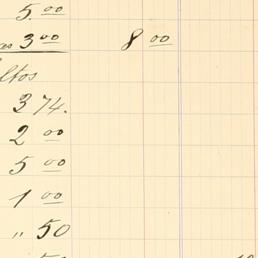 5.00
3 00 8 00
ltos
374.
2 00
5 00
1 00
" 50